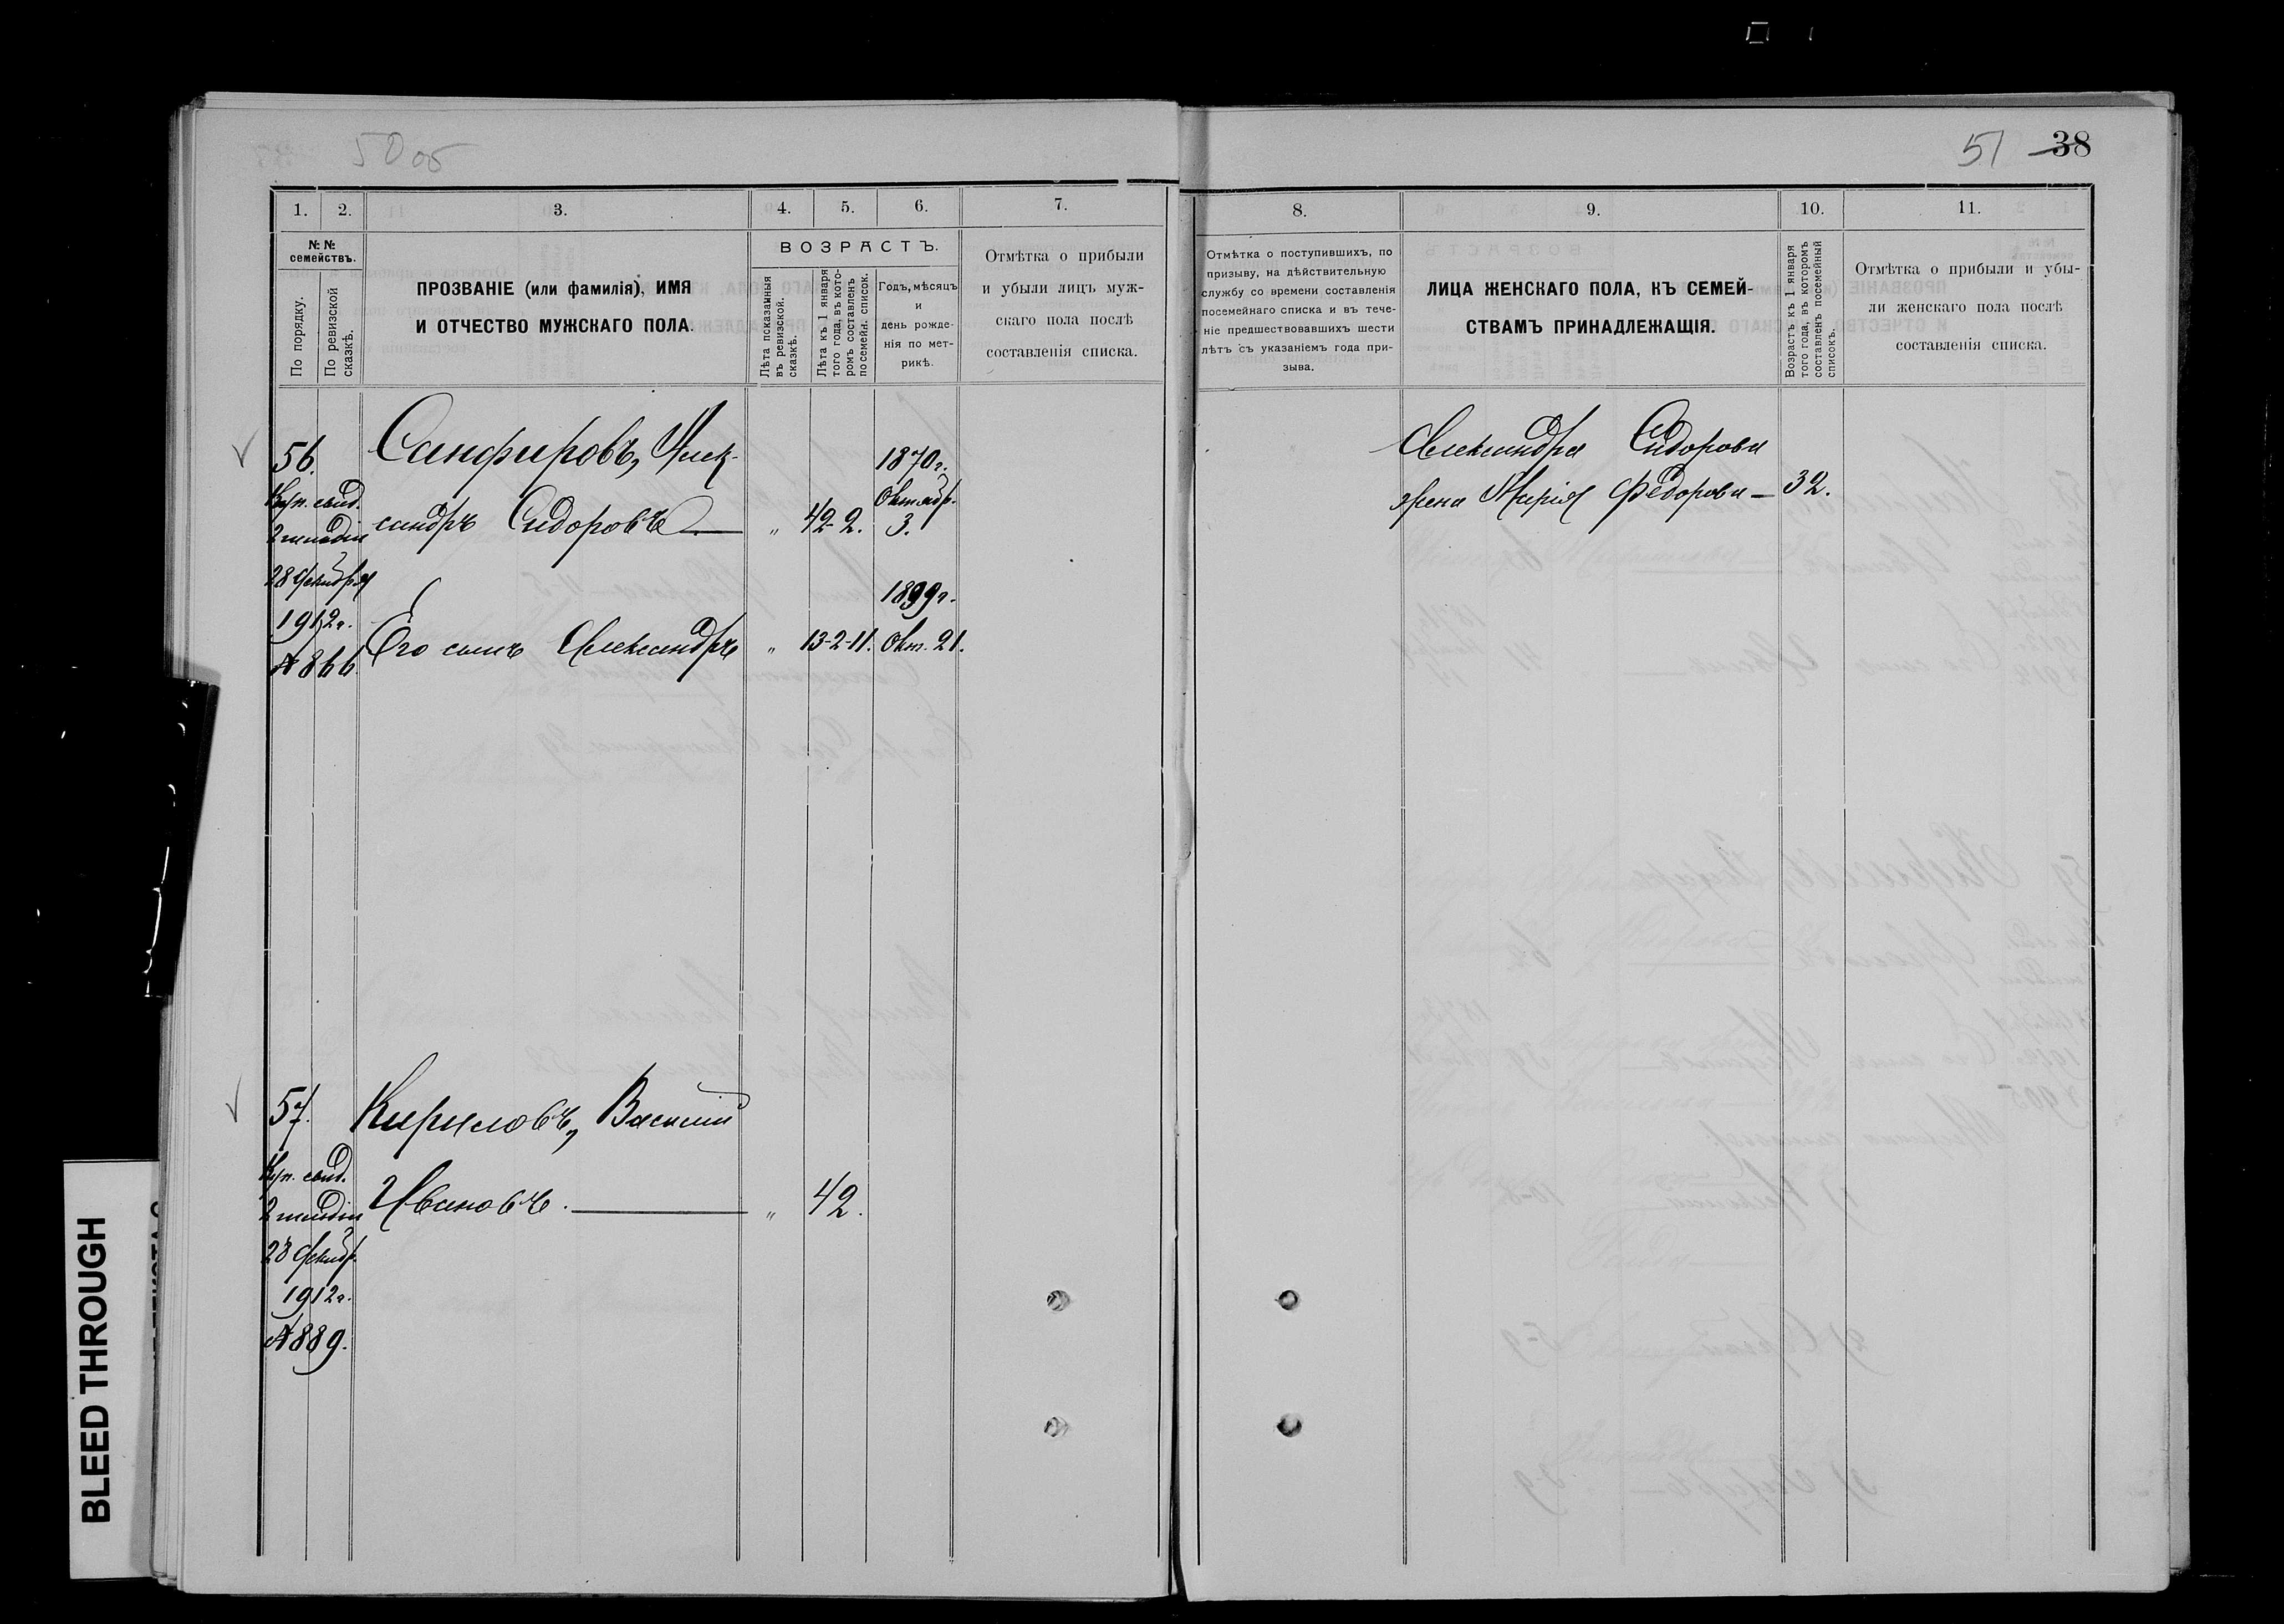 50 об
51 38
1. 2. 3. 4. 5. 6. 7.
№№ семействъ.
По порядку.
По ревизской сказкѣ.
ПРОЗВАНІЕ (или фамилія), ИМЯ
И ОТЧЕСТВО МУЖСКАГО ПОЛА.
ВОЗРАСТЪ.
Лѣта показанныя
въ ревизской
сказкѣ.
Лѣта къ 1 января
того года, въ кото-
ромъ составленъ
посемейн. список.
Годъ, мѣсяцъ
и
день рожде-
нія по мет-
рикѣ.
Отмѣтка о прибыли
и убыли лицъ муж-
скаго пола послѣ
составленія списка.
56.
Куп. свид.
2 гильдіи
28 Декабря
1912 г.
№ 866.
Санфировъ, Алек-
сандръ Сидоровъ „ 42-2.
1870 г.
Октябр.
3.
Его сынъ Александръ „ 13-2-11.
1899 г.
Окт. 21.
57.
Куп. свид.
2 гильдіи
28 Декабр.
1912 г.
№ 889.
Кириловъ, Василій
Ивановъ. „ 42.
8. 9. 10. 11.
Отмѣтка о поступившихъ, по
призыву, на дѣйствительную
службу со времени составленія
посемейнаго списка и въ тече-
ніе предшествовавшихъ шести
лѣтъ съ указаніемъ года при-
зыва.
ЛИЦА ЖЕНСКАГО ПОЛА, КЪ СЕМЕЙ-
СТВАМЪ ПРИНАДЛЕЖАЩІЯ.
Возрастъ къ 1 января
того года, въ которомъ
составленъ посемейный
списокъ.
Отмѣтка о прибыли и убы-
ли женскаго пола послѣ
составленія списка.
Александра Сидорова
жена Марія Федорова — 32.
BLEED THROUGH